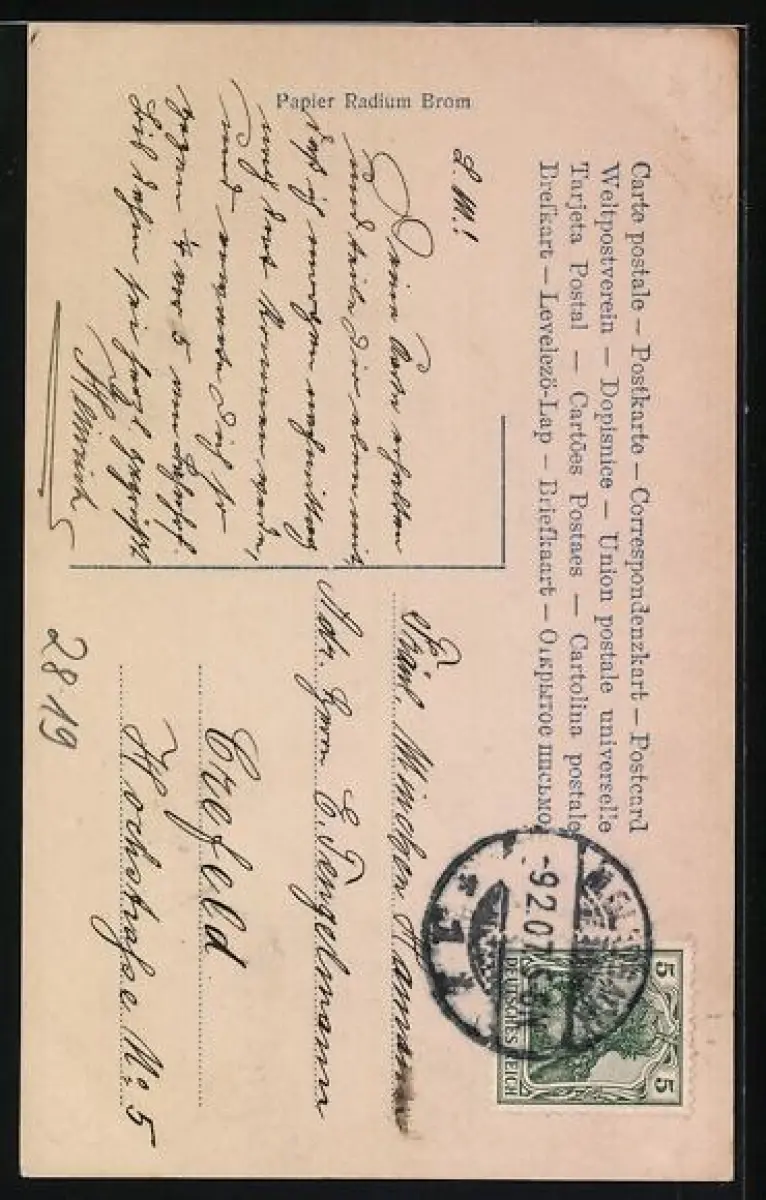 Papier Radium Brom
Carte postale – Postkarte – Correspondenzkart – Postcard
Weltpostverein – Dopisnice – Union postale universelle
Tarjeta Postal – Cartões Postaes – Cartolina postale
Brefkart – Levelezö-Lap – Briefkaart – Открытое письмо
L. M.!
Deine Karte erhalten
und teile Dir eben mit,
daß ich morgen nachmittag
nach dort kommen werde,
und erwarte Dich so
gegen ¼ vor 5 am Bahnhof.
Bis dahin sei herzl. gegrüßt
Heinrich
Fräul. Minchen
Adr. Herrn E. Tengelmann
Crefeld
Hochstraße No 5
2819
-9.2.07
5 5
DEUTSCHES REICH